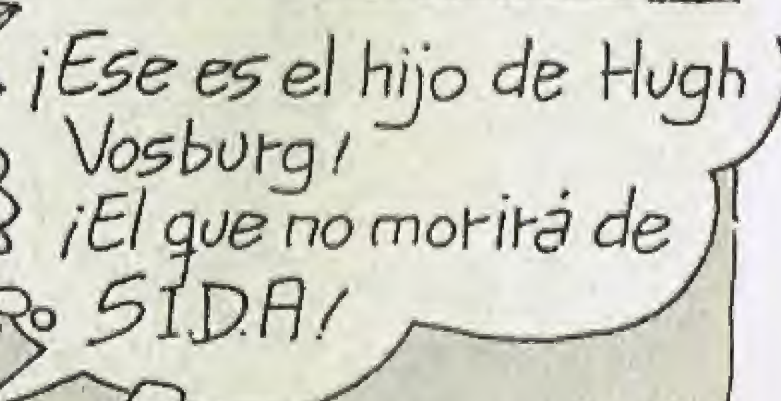 ¡Ese es el hijo de Hugh
Vosburg!
¡El que no morirá de
S.I.D.A!